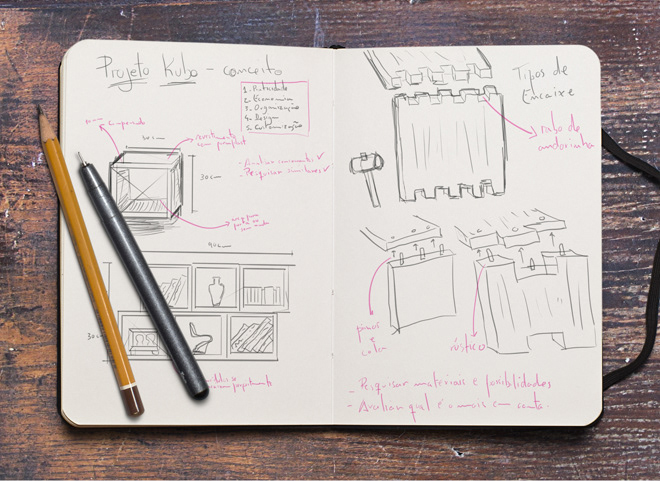 Projeto Kubo - conceito
1. Praticidade
2. Economia
3. Organização
4. Design
5. Customização
30cm
30cm
- Avaliar concorrentes ✓
- Pesquisar similares ✓
90cm
30c
Tipos de
Encaixe
rabo de
andorinha
pinos
e
cola
rústico
- Pesquisar materiais e possibilidades
- Avaliar qual é o mais em conta.